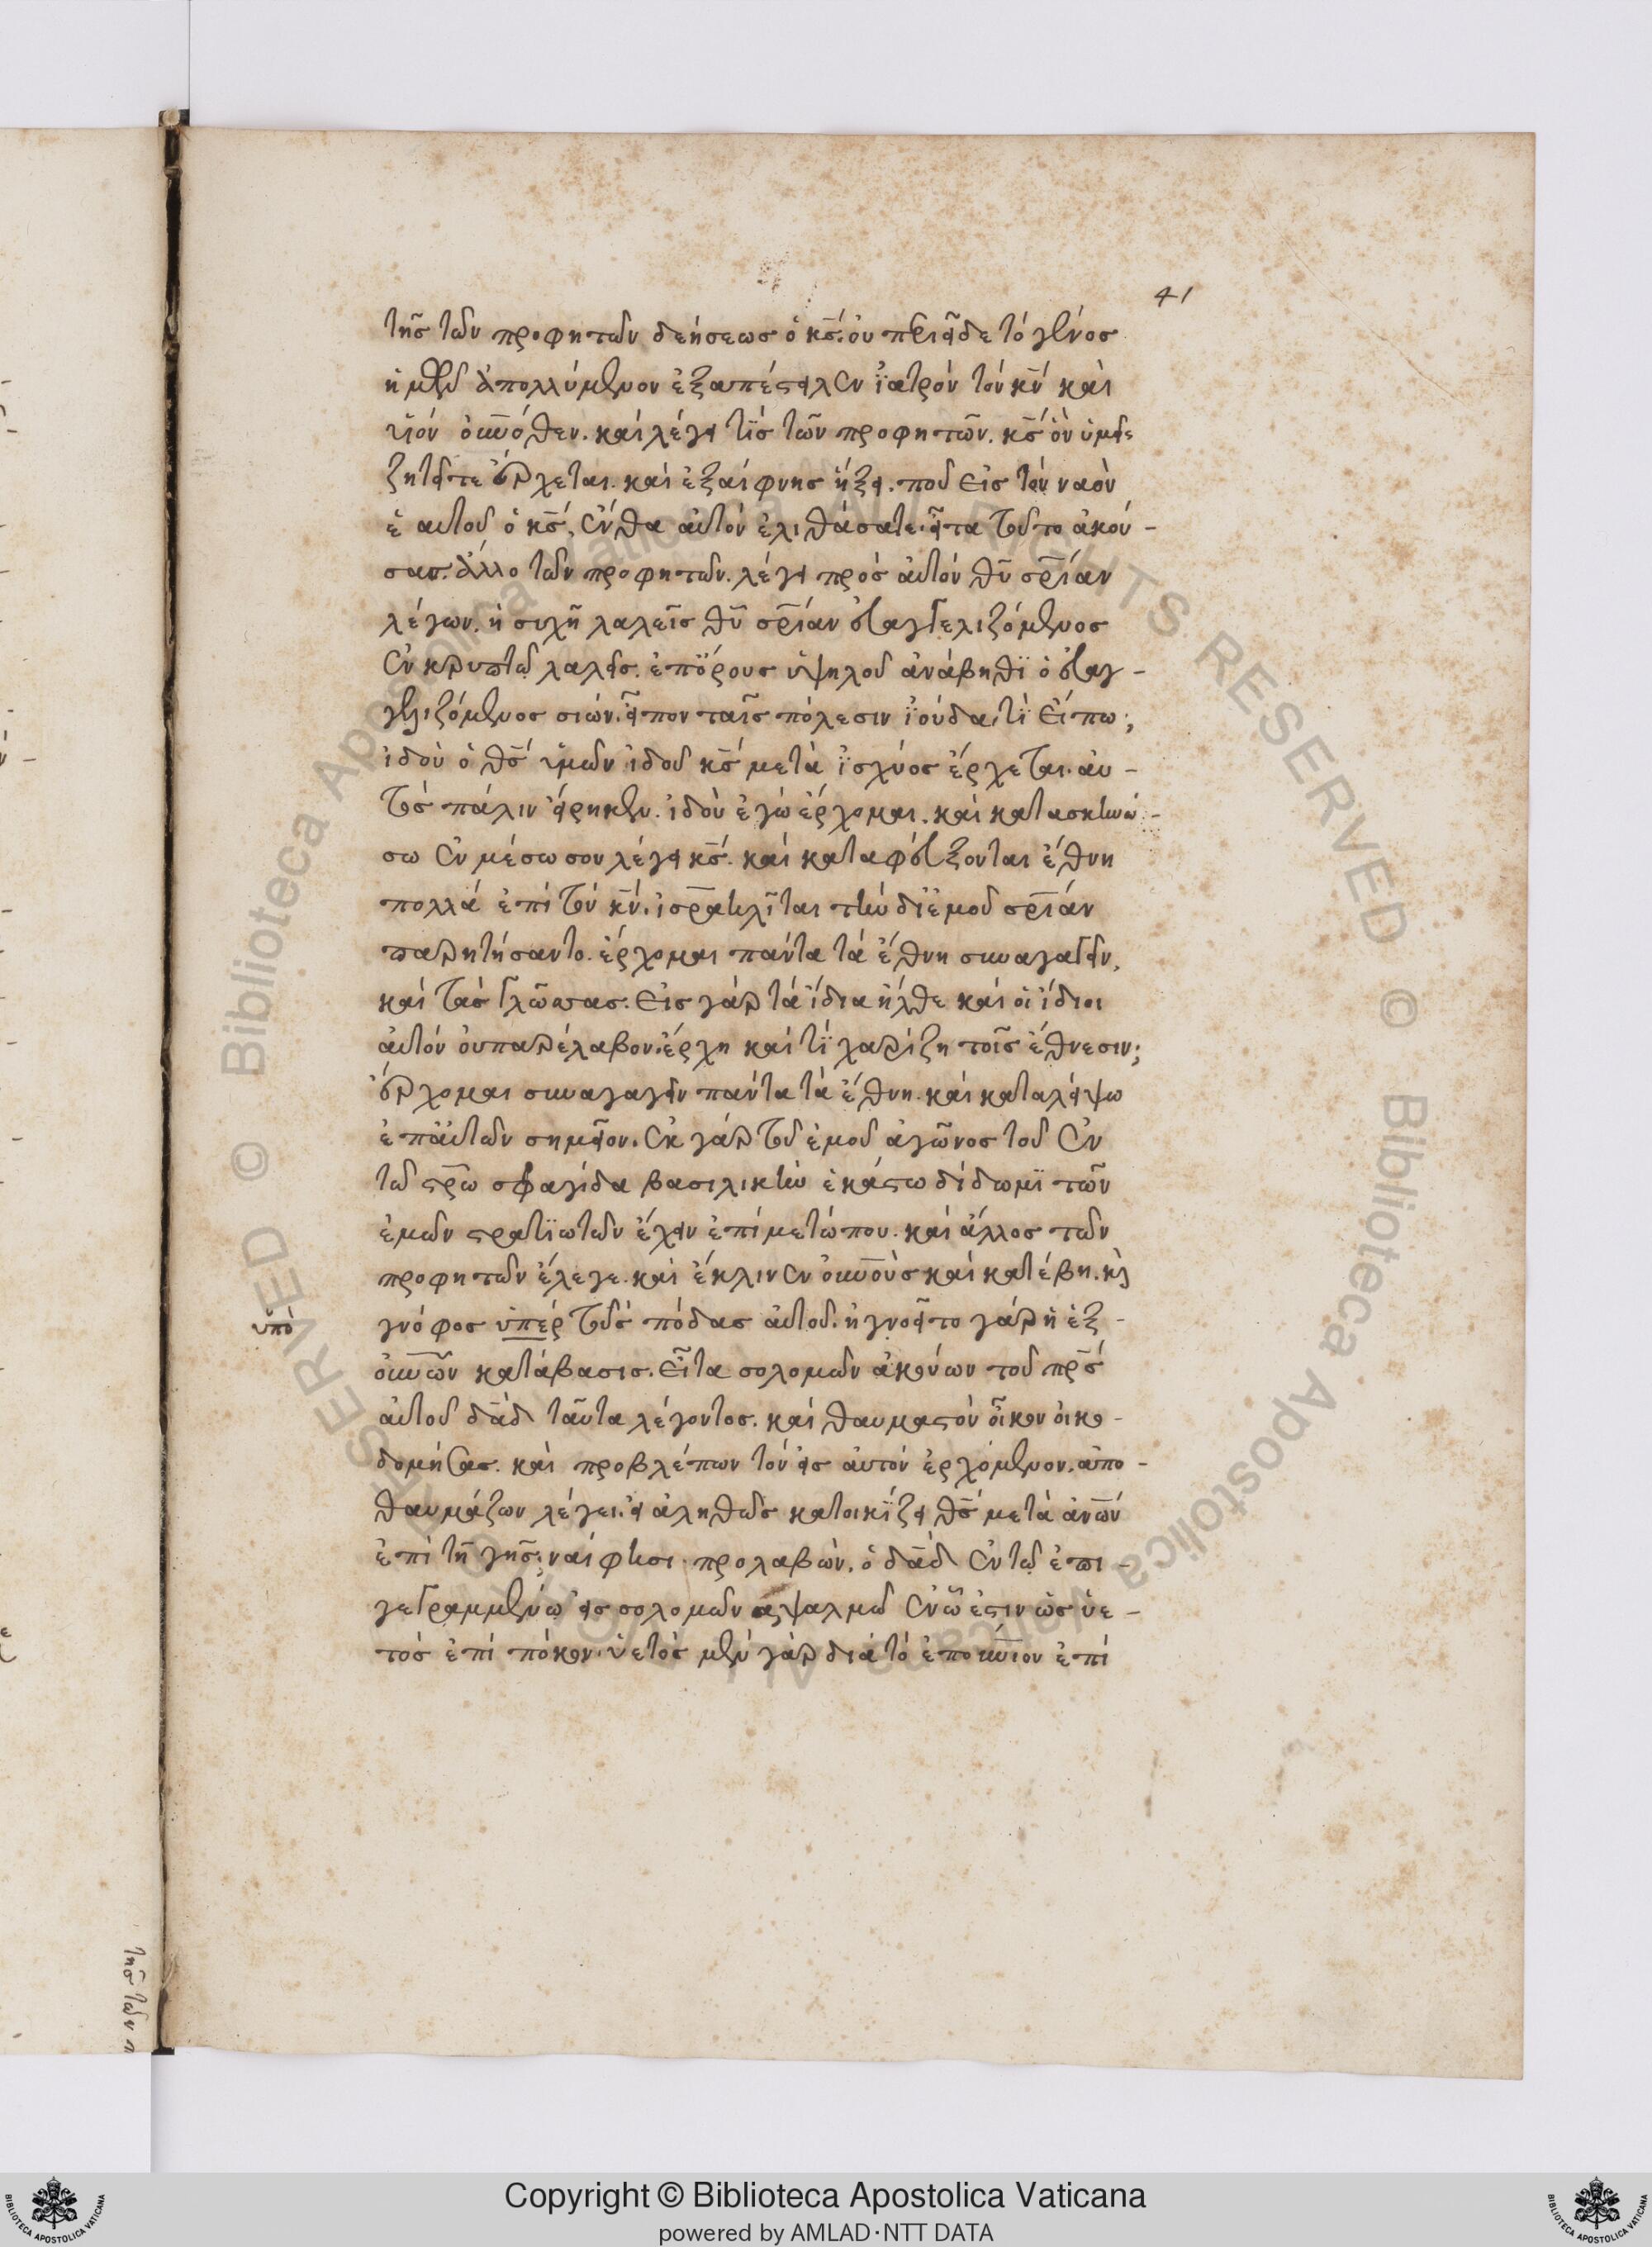 41
τῆς τῶν προφητῶν δεήσεως ὁ κς̄. οὐ περιεῖδε τὸ γένος
ἡμῶν ἀπολλύμενον ἐξαπέστειλεν ἰατρὸν τὸν κν̄ καὶ
υἱὸν οὐνόθεν. καὶ λέγει τὶς τῶν προφητῶν. κς̄ ὃν ὑμεῖς
ζητεῖτε ἔρχεται. καὶ ἐξαίφνης ἥξει. ποῦ εἰς τὸν ναὸν
ἑαυτοῦ ὁ κς̄, ἔνθα αὐτὸν ἐλιθάσατε. εἶτα τοῦτο ἀκού-
σας. ἄλλο τῶν προφητῶν. λέγει πρὸς αὐτὸν θῡ σρ̄ίαν
λέγων. ἡσυχῆ λαλεῖς θῡ σρ̄ίαν εὐαγγελιζόμενος
ἐν κρυπτῶ λαλεῖς. ἐπ' ὄρους ὑψηλοῦ ἀνάβηθι ὁ εὐαγ-
γελιζόμενος σιών. εἶπον ταῖς πόλεσιν ἰούδα, τί εἴπω;
ἰδοὺ ὁ θς̄ ὑμῶν ἰδοῦ κς̄ μετὰ ἰσχύος ἔρχεται. αὐ-
τὸς πάλιν εἴρηκεν. ἰδοὺ ἐγὼ ἔρχομαι. καὶ κατασκηνώ-
σω ἐν μέσω σου λέγει κς̄. καὶ καταφεύξονται ἔθνη
πολλά ἐπὶ τὸν κν̄. ἰσρ̄αηλῖται τὴν δι' ἐμοῦ σρ̄ίαν
παρητήσαντο. ἔρχομαι πάντα τὰ ἔθνη συναγαγεῖν,
καὶ τὰς γλῶσσας. εἰς γὰρ τὰ ἴδια ἦλθε καὶ οἱ ἴδιοι
αὐτὸν οὐ παρέλαβον. ἔρχη καὶ τί χαρίζη τοῖς ἔθνεσιν;
ἔρχομαι συναγαγεῖν πάντα τὰ ἔθνη. καὶ καταλείψω
ἐπ' αὐτῶν σημεῖον. ἐκ γὰρ τοῦ ἐμοῦ ἀγῶνος τοῦ ἐν
τῶ στρ̄ω σφραγίδα βασιλικὴν ἑκάστω δίδωμι τῶν
ἐμῶν στρατιωτῶν ἔχειν ἐπὶ μετώπου. καὶ ἄλλος τῶν
προφητῶν ἔλεγε. καὶ ἔκλινεν οὐν̄οὺς καὶ κατέβη. κὶ
ὑπὸ
γνόφος ὑπὲρ τοὺς πόδας αὐτοῦ. ἠγνοεῖτο γὰρ ἡ ἐξ-
οὐν̄ῶν κατάβασις. εἶτα σολομῶν ἀκούων τοῦ πρ̄ς
αὐτοῦ δᾱδ ταῦτα λέγοντος. καὶ θαυμαστὸν οἶκον οἰκο-
δομήσας. καὶ προβλέπων τὸν εἰς αὐτὸν ἐρχόμενον. ἀπο-
θαυμάζων λέγει. εἰ ἀληθῶς κατοικίζει θς̄ μετὰ ἀν̄ῶν
ἐπὶ τῆ γῆς; ναί φησι. προλαβὼν, ὁ δᾱδ ἐν τῶ ἐπι-
γεγραμμένω εἰς σολομῶν ψαλμῶ ἐν ὧ ἐστιν ὡς ὑε-
τὸς ἐπὶ πόκον. ὑετὸς μὲν γὰρ διὰ τὸ ἐπουν̄ιον ἐπὶ
τῆς τῶν π